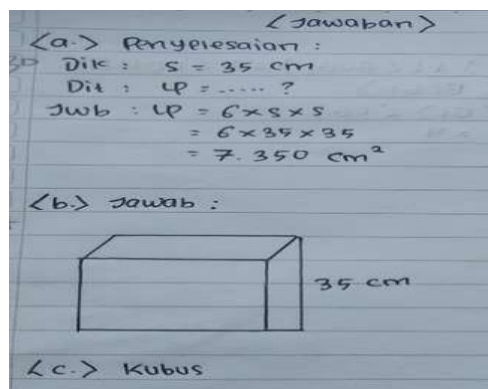 <Jawaban>
<a.> Penyelesaian :
Dik : s = 35 cm
Dit : LP = ..... ?
Jwb : LP = 6 × s × s
= 6 × 35 × 35
= 7.350 cm²
<b.> Jawab :
35 cm
<c.> Kubus